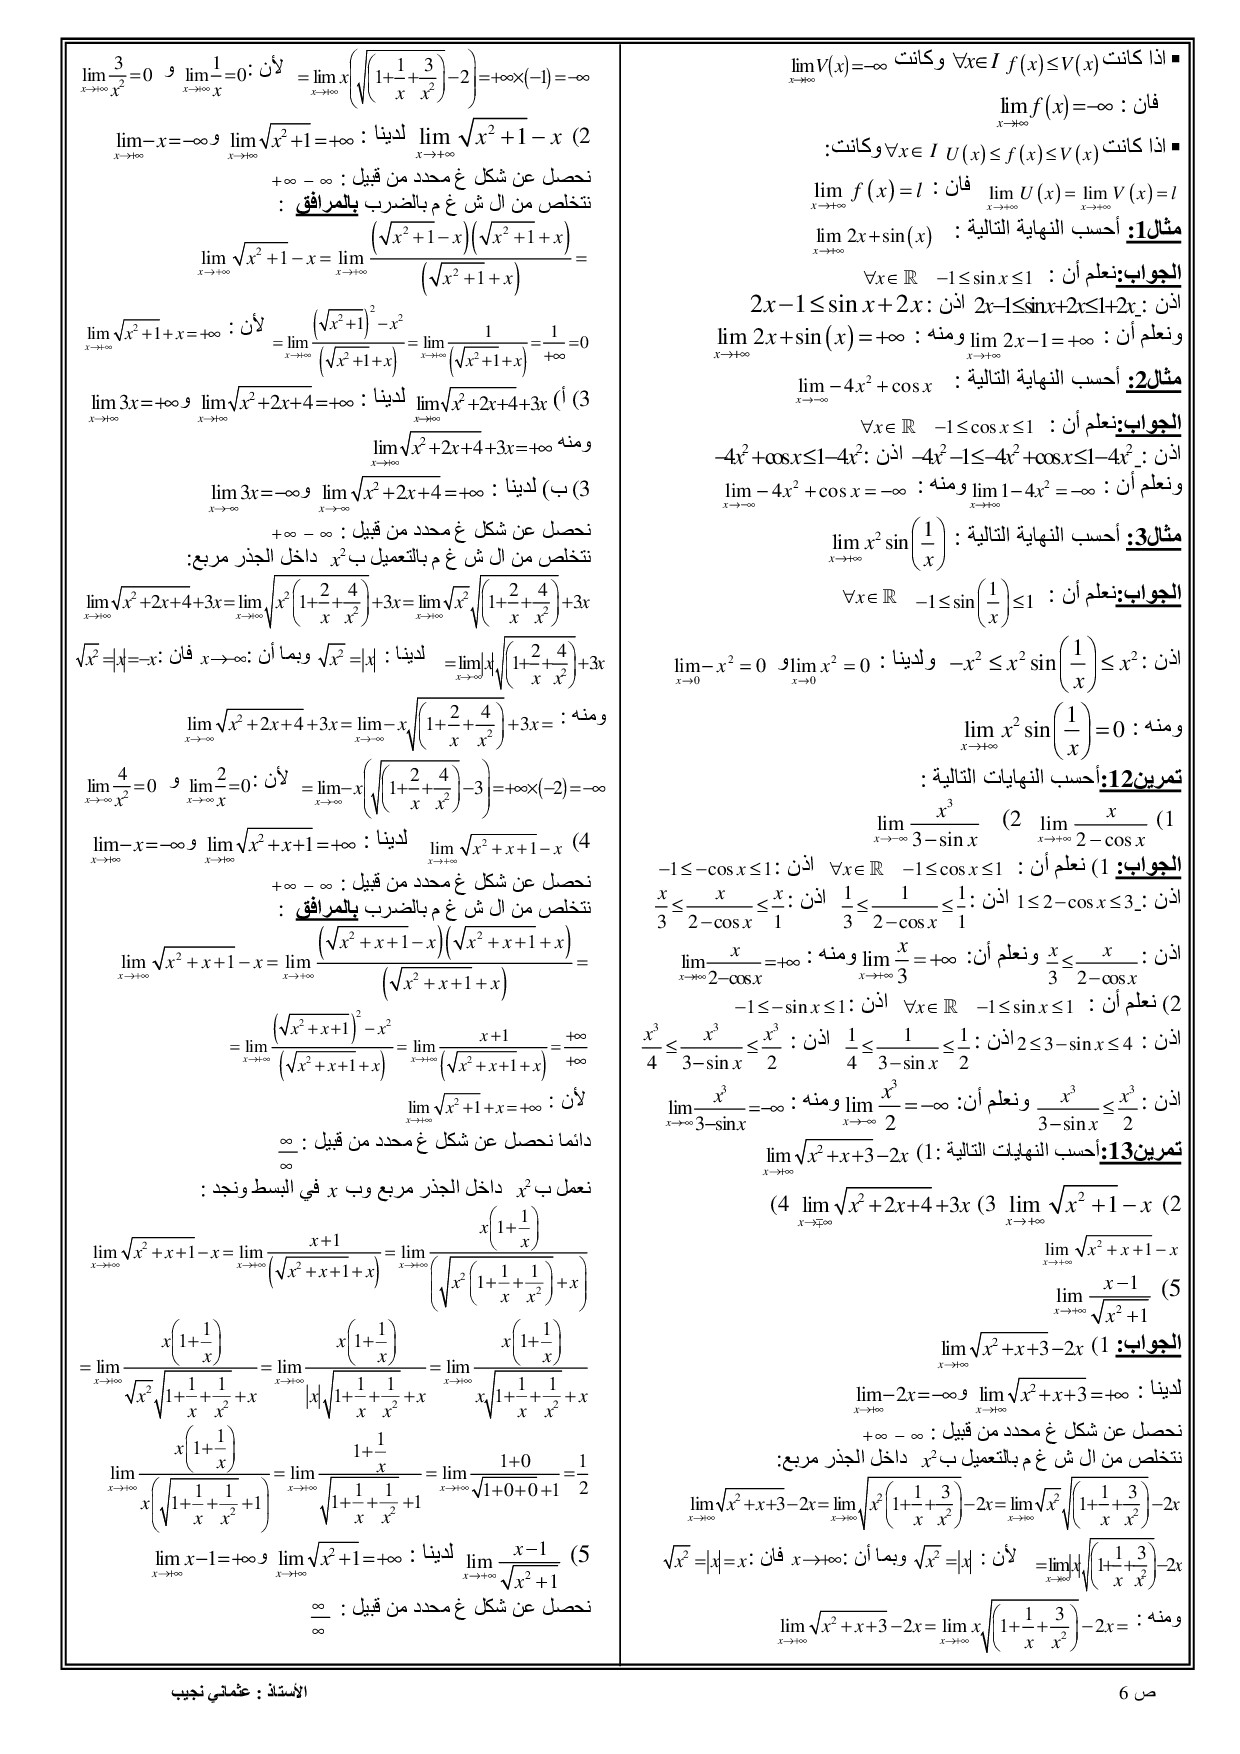 ▪ اذا كانت ∀x∈I f(x)≤V(x) وكانت lim_{x→+∞} V(x)=−∞
فان : lim_{x→+∞} f(x)=−∞
▪ اذا كانت ∀x∈I U(x)≤f(x)≤V(x) وكانت:
lim_{x→+∞} U(x)=lim_{x→+∞} V(x)=l فان : lim_{x→+∞} f(x)=l
مثال1: أحسب النهاية التالية : lim_{x→+∞} 2x+sin(x)
الجواب:نعلم أن : −1≤sin x≤1 ∀x∈ℝ
اذن : 2x−1≤sinx+2x≤1+2x اذن : 2x−1≤sin x+2x
ونعلم أن : lim_{x→+∞} 2x−1=+∞ ومنه : lim_{x→+∞} 2x+sin(x)=+∞
مثال2: أحسب النهاية التالية : lim_{x→−∞} −4x²+cos x
الجواب:نعلم أن : −1≤cos x≤1 ∀x∈ℝ
اذن : −4x²−1≤−4x²+cos x≤1−4x² اذن : −4x²+cos x≤1−4x²
ونعلم أن : lim_{x→+∞} 1−4x²=−∞ ومنه : lim_{x→−∞} −4x²+cos x=−∞
مثال3: أحسب النهاية التالية : lim_{x→+∞} x² sin(1/x)
الجواب:نعلم أن : −1≤sin(1/x)≤1 ∀x∈ℝ
اذن : −x²≤x² sin(1/x)≤x² ولدينا : lim_{x→0} x²=0 و lim_{x→0} −x²=0
ومنه : lim_{x→+∞} x² sin(1/x)=0
تمرين12:أحسب النهايات التالية :
1) lim_{x→+∞} x/(2−cos x) 2) lim_{x→−∞} x³/(3−sin x)
الجواب: 1) نعلم أن : −1≤cos x≤1 ∀x∈ℝ اذن : −1≤−cos x≤1
اذن : 1≤2−cos x≤3 اذن : 1/3≤1/(2−cos x)≤1/1 اذن : x/3≤x/(2−cos x)≤x/1
اذن : x/3≤x/(2−cos x) ونعلم أن: lim_{x→+∞} x/3=+∞ ومنه : lim_{x→+∞} x/(2−cos x)=+∞
2) نعلم أن : −1≤sin x≤1 ∀x∈ℝ اذن : −1≤−sin x≤1
اذن : 2≤3−sin x≤4 اذن : 1/4≤1/(3−sin x)≤1/2 اذن : x³/4≤x³/(3−sin x)≤x³/2
اذن : x³/(3−sin x)≤x³/2 ونعلم أن: lim_{x→−∞} x³/2=−∞ ومنه : lim_{x→−∞} x³/(3−sin x)=−∞
تمرين13:أحسب النهايات التالية : 1) lim_{x→+∞} √(x²+x+3)−2x
2) lim_{x→+∞} √(x²+1)−x 3) lim_{x→∓∞} √(x²+2x+4)+3x 4)
lim_{x→+∞} √(x²+x+1)−x
5) lim_{x→+∞} (x−1)/√(x²+1)
الجواب: 1) lim_{x→+∞} √(x²+x+3)−2x
لدينا : lim_{x→+∞} √(x²+x+3)=+∞ و lim_{x→+∞} −2x=−∞
نحصل عن شكل غ محدد من قبيل : +∞−∞
نتخلص من ال ش غ م بالتعميل ب x² داخل الجذر مربع:
lim_{x→+∞} √(x²+x+3)−2x=lim_{x→+∞} √(x²(1+1/x+3/x²))−2x=lim_{x→+∞} √x² √(1+1/x+3/x²)−2x
=lim_{x→+∞} |x|√(1+1/x+3/x²)−2x لأن : √x²=|x| وبما أن : x→+∞ فان : √x²=|x|=x
ومنه : lim_{x→+∞} √(x²+x+3)−2x=lim_{x→+∞} x√(1+1/x+3/x²)−2x=
=lim_{x→+∞} x(√(1+1/x+3/x²)−2)=+∞×(−1)=−∞ لأن : lim_{x→+∞} 1/x=0 و lim_{x→+∞} 3/x²=0
2) lim_{x→+∞} √(x²+1)−x لدينا : lim_{x→+∞} √(x²+1)=+∞ و lim_{x→+∞} −x=−∞
نحصل عن شكل غ محدد من قبيل : +∞−∞
نتخلص من ال ش غ م بالضرب بالمرافق :
lim_{x→+∞} √(x²+1)−x=lim_{x→+∞} (√(x²+1)−x)(√(x²+1)+x)/(√(x²+1)+x)=
=lim_{x→+∞} ((√(x²+1))²−x²)/(√(x²+1)+x)=lim_{x→+∞} 1/(√(x²+1)+x)=1/+∞=0 لأن : lim_{x→+∞} √(x²+1)+x=+∞
3) أ) lim_{x→+∞} √(x²+2x+4)+3x لدينا : lim_{x→+∞} √(x²+2x+4)=+∞ و lim_{x→+∞} 3x=+∞
ومنه lim_{x→+∞} √(x²+2x+4)+3x=+∞
3) ب) لدينا : lim_{x→−∞} √(x²+2x+4)=+∞ و lim_{x→−∞} 3x=−∞
نحصل عن شكل غ محدد من قبيل : +∞−∞
نتخلص من ال ش غ م بالتعميل ب x² داخل الجذر مربع:
lim_{x→+∞} √(x²+2x+4)+3x=lim_{x→+∞} √(x²(1+2/x+4/x²))+3x=lim_{x→+∞} √x² √(1+2/x+4/x²)+3x
=lim_{x→−∞} |x|√(1+2/x+4/x²)+3x لدينا : √x²=|x| وبما أن : x→−∞ فان : √x²=|x|=−x
ومنه : lim_{x→−∞} √(x²+2x+4)+3x=lim_{x→−∞} −x√(1+2/x+4/x²)+3x=
=lim_{x→−∞} −x(√(1+2/x+4/x²)−3)=+∞×(−2)=−∞ لأن : lim_{x→−∞} 2/x=0 و lim_{x→−∞} 4/x²=0
4) lim_{x→+∞} √(x²+x+1)−x لدينا : lim_{x→+∞} √(x²+x+1)=+∞ و lim_{x→+∞} −x=−∞
نحصل عن شكل غ محدد من قبيل : +∞−∞
نتخلص من ال ش غ م بالضرب بالمرافق :
lim_{x→+∞} √(x²+x+1)−x=lim_{x→+∞} (√(x²+x+1)−x)(√(x²+x+1)+x)/(√(x²+x+1)+x)=
=lim_{x→+∞} ((√(x²+x+1))²−x²)/(√(x²+x+1)+x)=lim_{x→+∞} (x+1)/(√(x²+x+1)+x)=+∞/+∞
لأن : lim_{x→+∞} √(x²+1)+x=+∞
دائما نحصل عن شكل غ محدد من قبيل : ∞/∞
نعمل ب x² داخل الجذر مربع وب x في البسط ونجد :
lim_{x→+∞} √(x²+x+1)−x=lim_{x→+∞} (x+1)/(√(x²+x+1)+x)=lim_{x→+∞} x(1+1/x)/(√(x²(1+1/x+1/x²))+x)
=lim_{x→+∞} x(1+1/x)/(√x² √(1+1/x+1/x²)+x)=lim_{x→+∞} x(1+1/x)/(|x|√(1+1/x+1/x²)+x)=lim_{x→+∞} x(1+1/x)/(x√(1+1/x+1/x²)+x)
lim_{x→+∞} x(1+1/x)/(x(√(1+1/x+1/x²)+1))=lim_{x→+∞} (1+1/x)/(√(1+1/x+1/x²)+1)=lim_{x→+∞} (1+0)/(√(1+0+0)+1)=1/2
5) lim_{x→+∞} (x−1)/√(x²+1) لدينا : lim_{x→+∞} √(x²+1)=+∞ و lim_{x→+∞} x−1=+∞
نحصل عن شكل غ محدد من قبيل : ∞/∞
ص 6
الأستاذ : عثماني نجيب